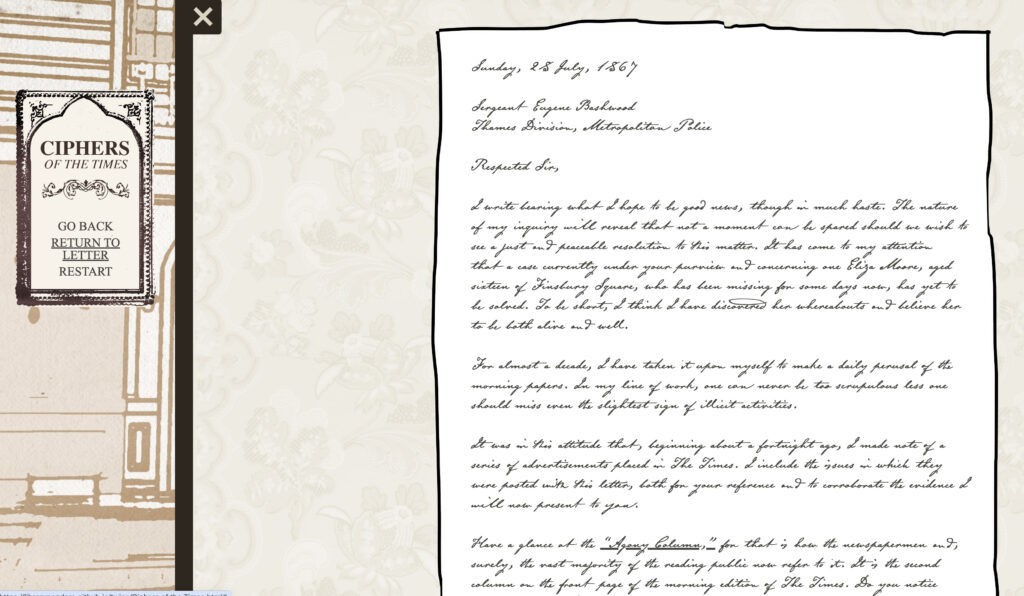 CIPHERS
OF THE TIMES
GO BACK
RETURN TO
LETTER
RESTART
Sunday, 28 July, 1867
Sergeant Eugene Bashwood
Thames Division, Metropolitan Police
Respected Sir,
I write bearing what I hope to be good news, though in much haste. The nature
of my inquiry will reveal that not a moment can be spared should we wish to
see a just and peaceable resolution to this matter. It has come to my attention
that a case currently under your purview and concerning one Eliza Moore, aged
sixteen of Finsbury Square, who has been missing for some days now, has yet to
be solved. To be short, I think I have discovered her whereabouts and believe her
to be both alive and well.
For almost a decade, I have taken it upon myself to make a daily perusal of the
morning papers. In my line of work, one can never be too scrupulous less one
should miss even the slightest sign of illicit activities.
It was in this attitude that, beginning about a fortnight ago, I made note of a
series of advertisements placed in The Times. I include the issues in which they
were posted with this letter, both for your reference and to corroborate the evidence I
will now present to you.
Have a glance at the "Agony Column," for that is how the newspapermen and,
surely, the vast majority of the reading public now refer to it. It is the second
column on the front page of the morning edition of The Times. Do you notice